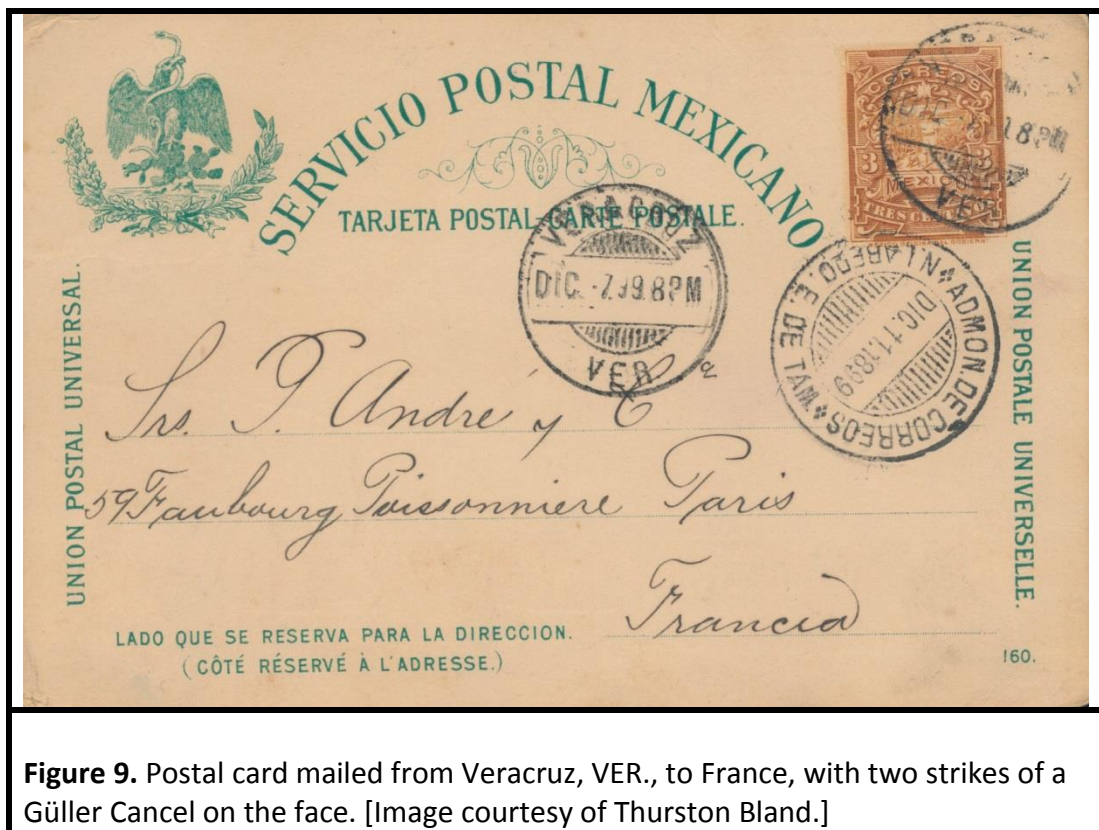 SERVICIO POSTAL MEXICANO
TARJETA POSTAL-CARTE POSTALE.
UNION POSTAL UNIVERSAL.
UNION POSTALE UNIVERSELLE.
CORREOS
3 3
MEXICO
TRES CENTAVOS
DIC 18PM
VER
VERACRUZ
DIC. -7.99.8PM
VER
ADMON DE CORREOS
N. LAREDO. E. DE TAM.
DIC. 11. 1899
Srs. P. André y C
59 Faubourg Poissonniere Paris
Francia
LADO QUE SE RESERVA PARA LA DIRECCION.
(CÔTÉ RÉSERVÉ À L'ADRESSE.)
160.
Figure 9. Postal card mailed from Veracruz, VER., to France, with two strikes of a
Güller Cancel on the face. [Image courtesy of Thurston Bland.]